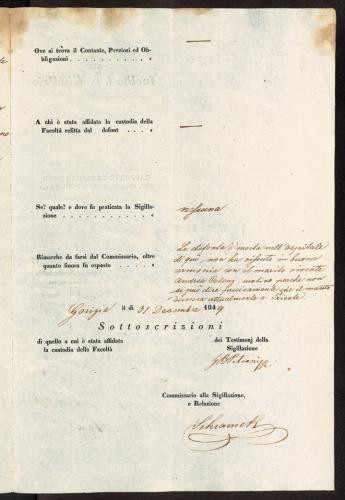 Ove si trova il Contante, Preziosi ed Ob-
bligazioni . . . . . . . . . . —
A chi è stata affidata la custodia della
Facoltà relitta dal defont . . . . —
Se? quale? e dove fu praticata la Sigilla-
zione . . . . . . . . . . . nessuna
Rimarche da farsi dal Commissario, oltre
quanto finora fu esposto . . . .
La defonta è morta nell'ospitale
di qui, non ha vissuto in buona
armonia con il marito vivente
Andrea motivo perchè non
si può dire precisamente che il marito
dimora attualmente a Trieste.
Gorizia il dì 31 Decembre 1849
Sottoscrizioni
di quello a cui è stata affidata
la custodia della Facoltà
dei Testimonj della
Sigillazione
Commissario alla Sigillazione,
e Relazione
Schrameck